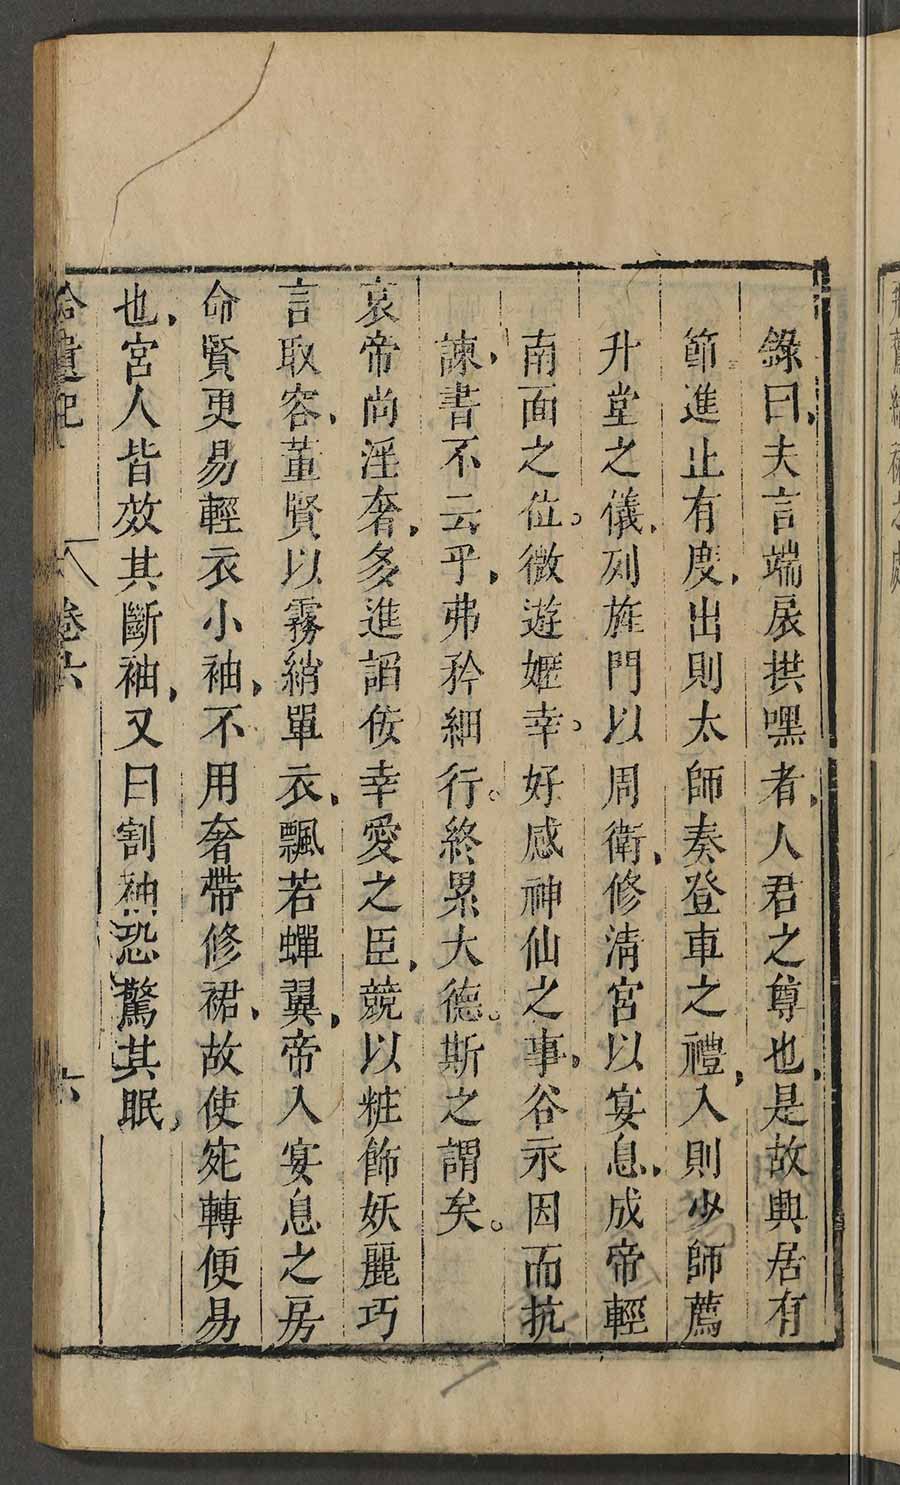 錄曰夫言端扆拱嘿者人君之尊也是故興居有
節進止有度出則太師奏登車之禮入則少師薦
升堂之儀列旌門以周衛修清宮以宴息成帝輕
南面之位微遊嬺幸好感神仙之事谷永因而抗
諫書不云乎弗矜細行終累大德斯之謂矣
哀帝尚淫奢多進諂佞幸愛之臣競以粧飾妖麗巧
言取容董賢以霧綃單衣飄若蟬翼帝入宴息之房
命賢更易輕衣小袖不用奢帶修裙故使宛轉便易
也宮人皆效其斷袖又曰割袖恐驚其眠
拾遺記 卷六 六